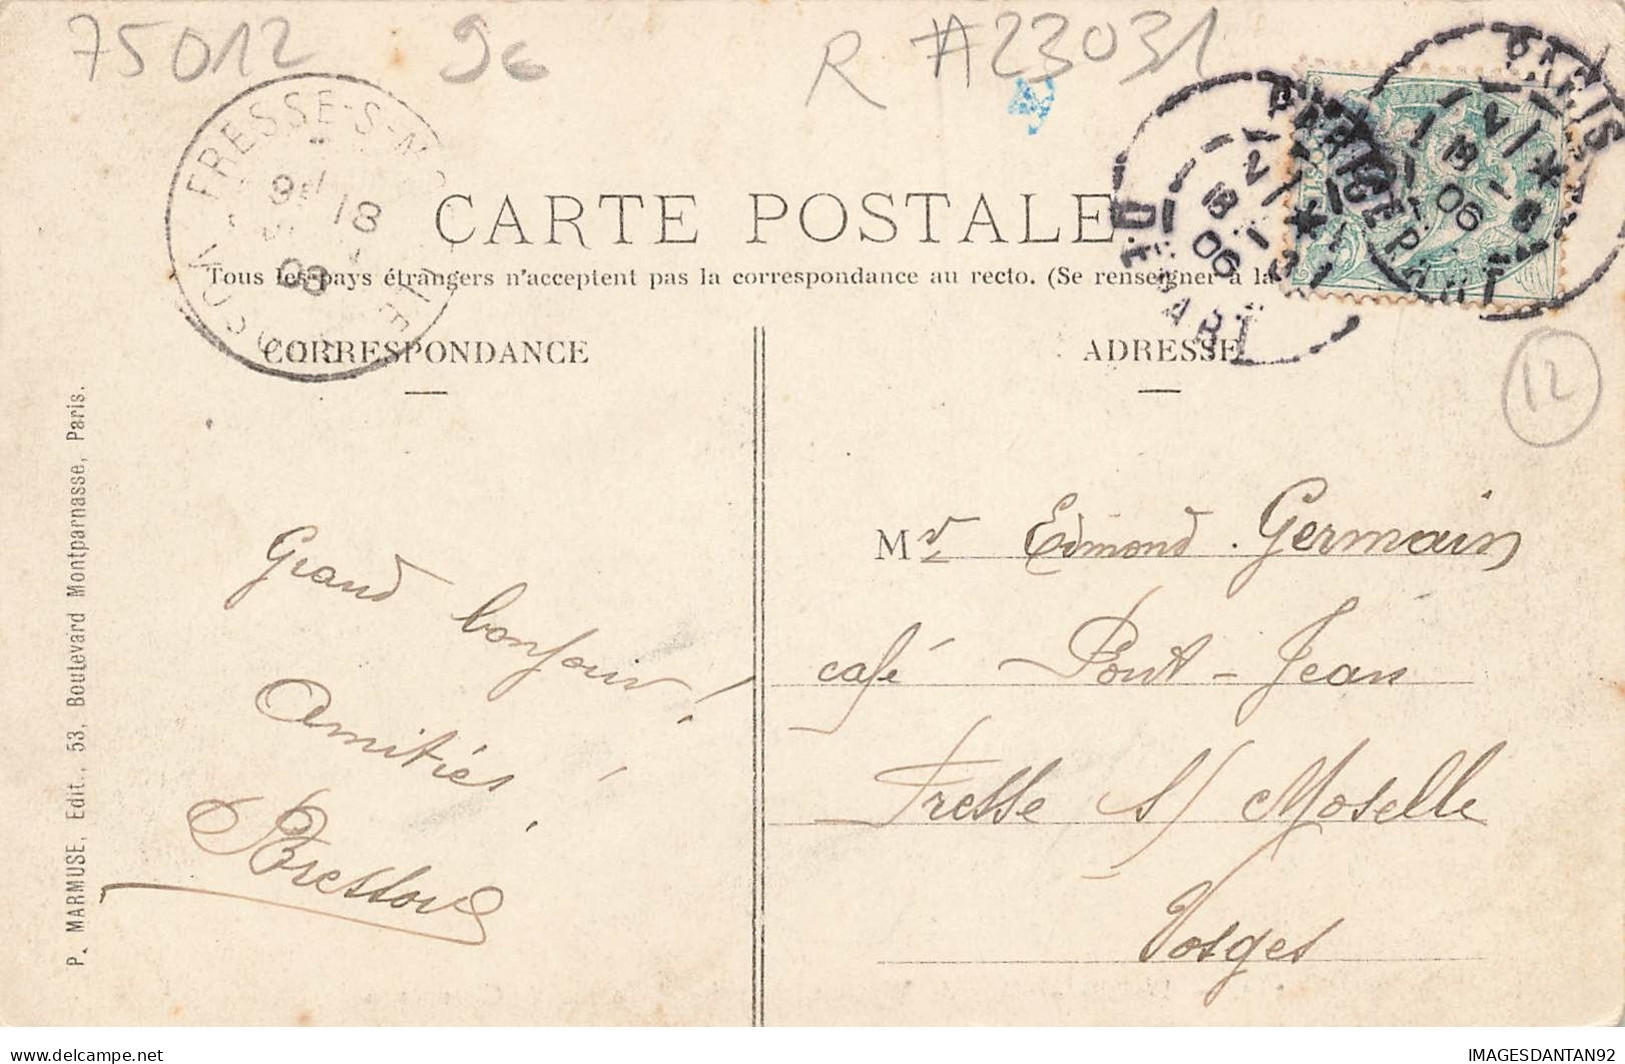 75012 9e R #23031
FRESSE-S-MO
18
VOSGES
PARIS
21
18 1
06
PARIS
21
18 1
06
DEPART
CARTE POSTALE
Tous les pays étrangers n'acceptent pas la correspondance au recto. (Se renseigner à la
CORRESPONDANCE
ADRESSE
12
Grand bonjour!
Amitiés
Mr Edmond Germain
café Pont-Jean
Fresse s/ Moselle
Vosges
P. MARMUSE, Edit., 53, Boulevard Montparnasse, Paris.
IMAGESDANTAN92
delcampe.net